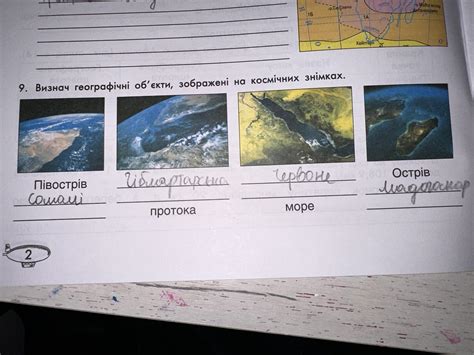 9. Визнач географічні об'єкти, зображені на космічних знімках.
Півострів
Сомалі
Гібмартарська
протока
Червоне
море
Острів
Мадагакар
2